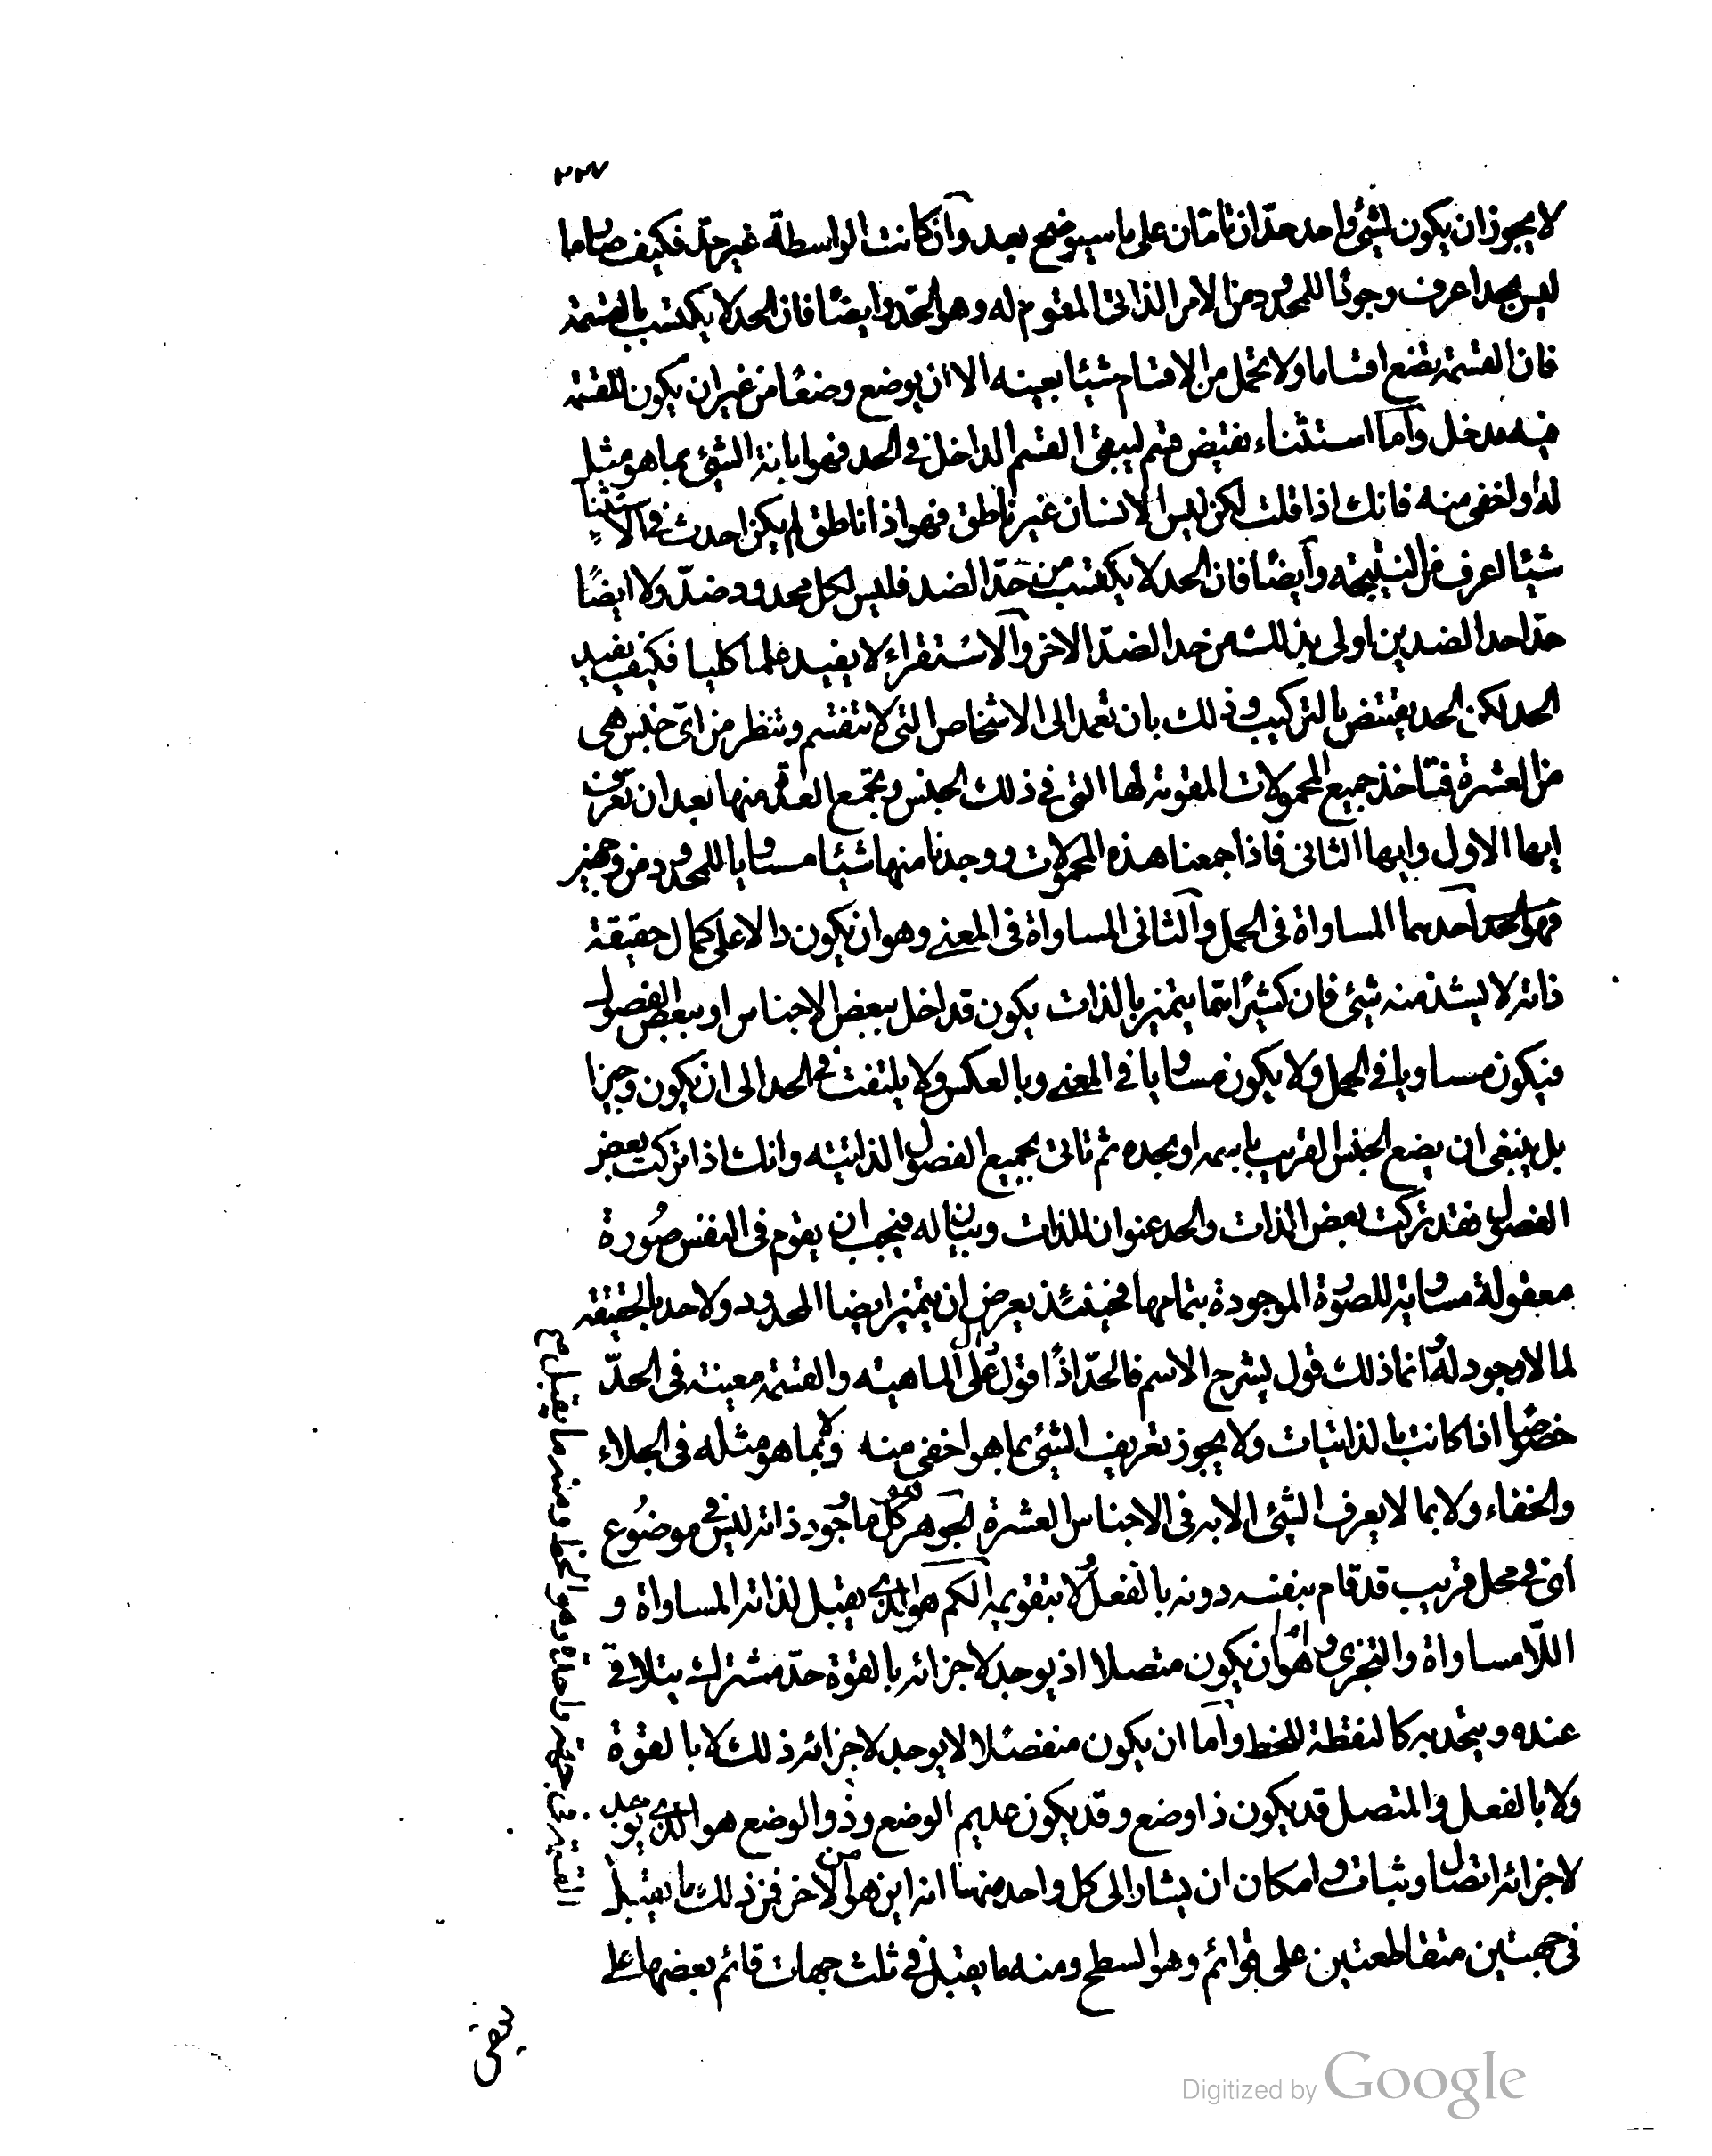 ٢٢٧
لا يجوز ان يكون لشئ واحد حدّان تامّان على ما سيوضح بعد وان كانت الواسطة غير حدّ فكيف صار ما
ليس بحد اعرف وجودًا للمحدود من الامر الذاتى المقوم له وهو الحّد وايضًا فان الحد لا يكتسب بالقسمة
فان القسمة تضع اقساما ولا تحمل من الاقسام شيئا بعينه الا ان يوضع وضعًا من غير ان يكون للقسمة
فيه مدخل وامّا استثناء نقيض قسم ليبقى القسم الداخل فى الحد فهو ابانة الشئ بما هو مثله
له او اخفى منه فانك اذا قلت لكن ليس الانسان غير ناطق فهو اذا ناطق لم يكن احدث فى الاستثناء
شيئا اعرف من النتيجة وايضًا فان الحد لا يكتسب من حدّ الضد فليس لكل محدود ضدّ ولا ايضًا
حدّ احد الضدين اولى بذلك من حد الضدّ الاخر والاستقراء لا يفيد علما كليا فكيف يفيد
الحد لكن الحد يقتنص بالتركيب وذلك بان تعمد الى الاشخاص التى لا تنقسم وتنظر من اىّ جنس هى
من العشرة فتاخذ جميع المحمولات المقومة لها التى فى ذلك الجنس وتجمع العدّة منها بعد ان تعرف
ايها الاول وايها الثانى فاذا جمعنا هذه المحمولات ووجدنا منها شيئا مساويا للمحدود من وجهين
فهو الحد احدهما المساواة فى الحمل والثانى المساواة فى المعنى وهو ان يكون دالا على كمال حقيقة
ذاته لا يشذ منه شئ فان كثيرًا ممّا يتميز بالذات يكون قد اخل ببعض الاجناس او ببعض الفصول
فيكون مساويا فى الحمل ولا يكون مساويا فى المعنى وبالعكس ولا يلتفت فى الحد الى ان يكون وجيزا
بل ينبغى ان يضع الجنس القريب باسمه او بحده ثم تاتى بجميع الفصول الذاتيته وانك اذا تركت بعض
الفصول فقد تركت بعض الذات والحد عنوان للذات وبيان له فيجب ان يقوم فى النفس صُورة
معقولة مساوية للصُورة الموجودة بتمامها فحينئذ يعرض ان يتميز ايضا المحدود ولا حد بالحقيقة
لما لا وجود له انما ذلك قول يشرح الاسم فالحدّ اذًا قول دال على الماهيته والقسمة معينة فى الحدّ
خصُوصًا اذا كانت بالذاتيات ولا يجوز تعريف الشئ بما هو اخفى منه ولا بما هو مثله فى الجلاء
والخفاء ولا بما لا يعرف الشئ الا به فى الاجناس العشرة الجوهر هو كل ما وجُود ذاته ليس فى موضوع
اى فى محل قريب قد قام بنفسه دونه بالفعل ولا بتقويمه الكم هو الذى يقبل لذاته المساواة و
اللامساواة والتجزى وهو امّا ان يكون متصلا اذ يوجد لاجزائه بالقوة حدّ مشترك يتلاقى
عنده ويتحد به كالنقطة للخط وامّا ان يكون منفصلا لا يوجد لاجزائه ذلك لا بالقوة
ولا بالفعل والمتصل قد يكون ذا وضع وقد يكون عديم الوضع وذو الوضع هو الذى يوجد
لاجزائه اتصال وثبات وامكان ان يشار الى كل واحد منها انه اين هو من الاخر فمن ذلك ما يقبل
القسمة فى جهة واحدة وهو الخط ومنه ما يقبل ع
فى جهتين متقاطعتين على قوائم وهو السطح ومنه ما يقبل فى ثلث جهات قائم بعضها على
بعض
Digitized by Google